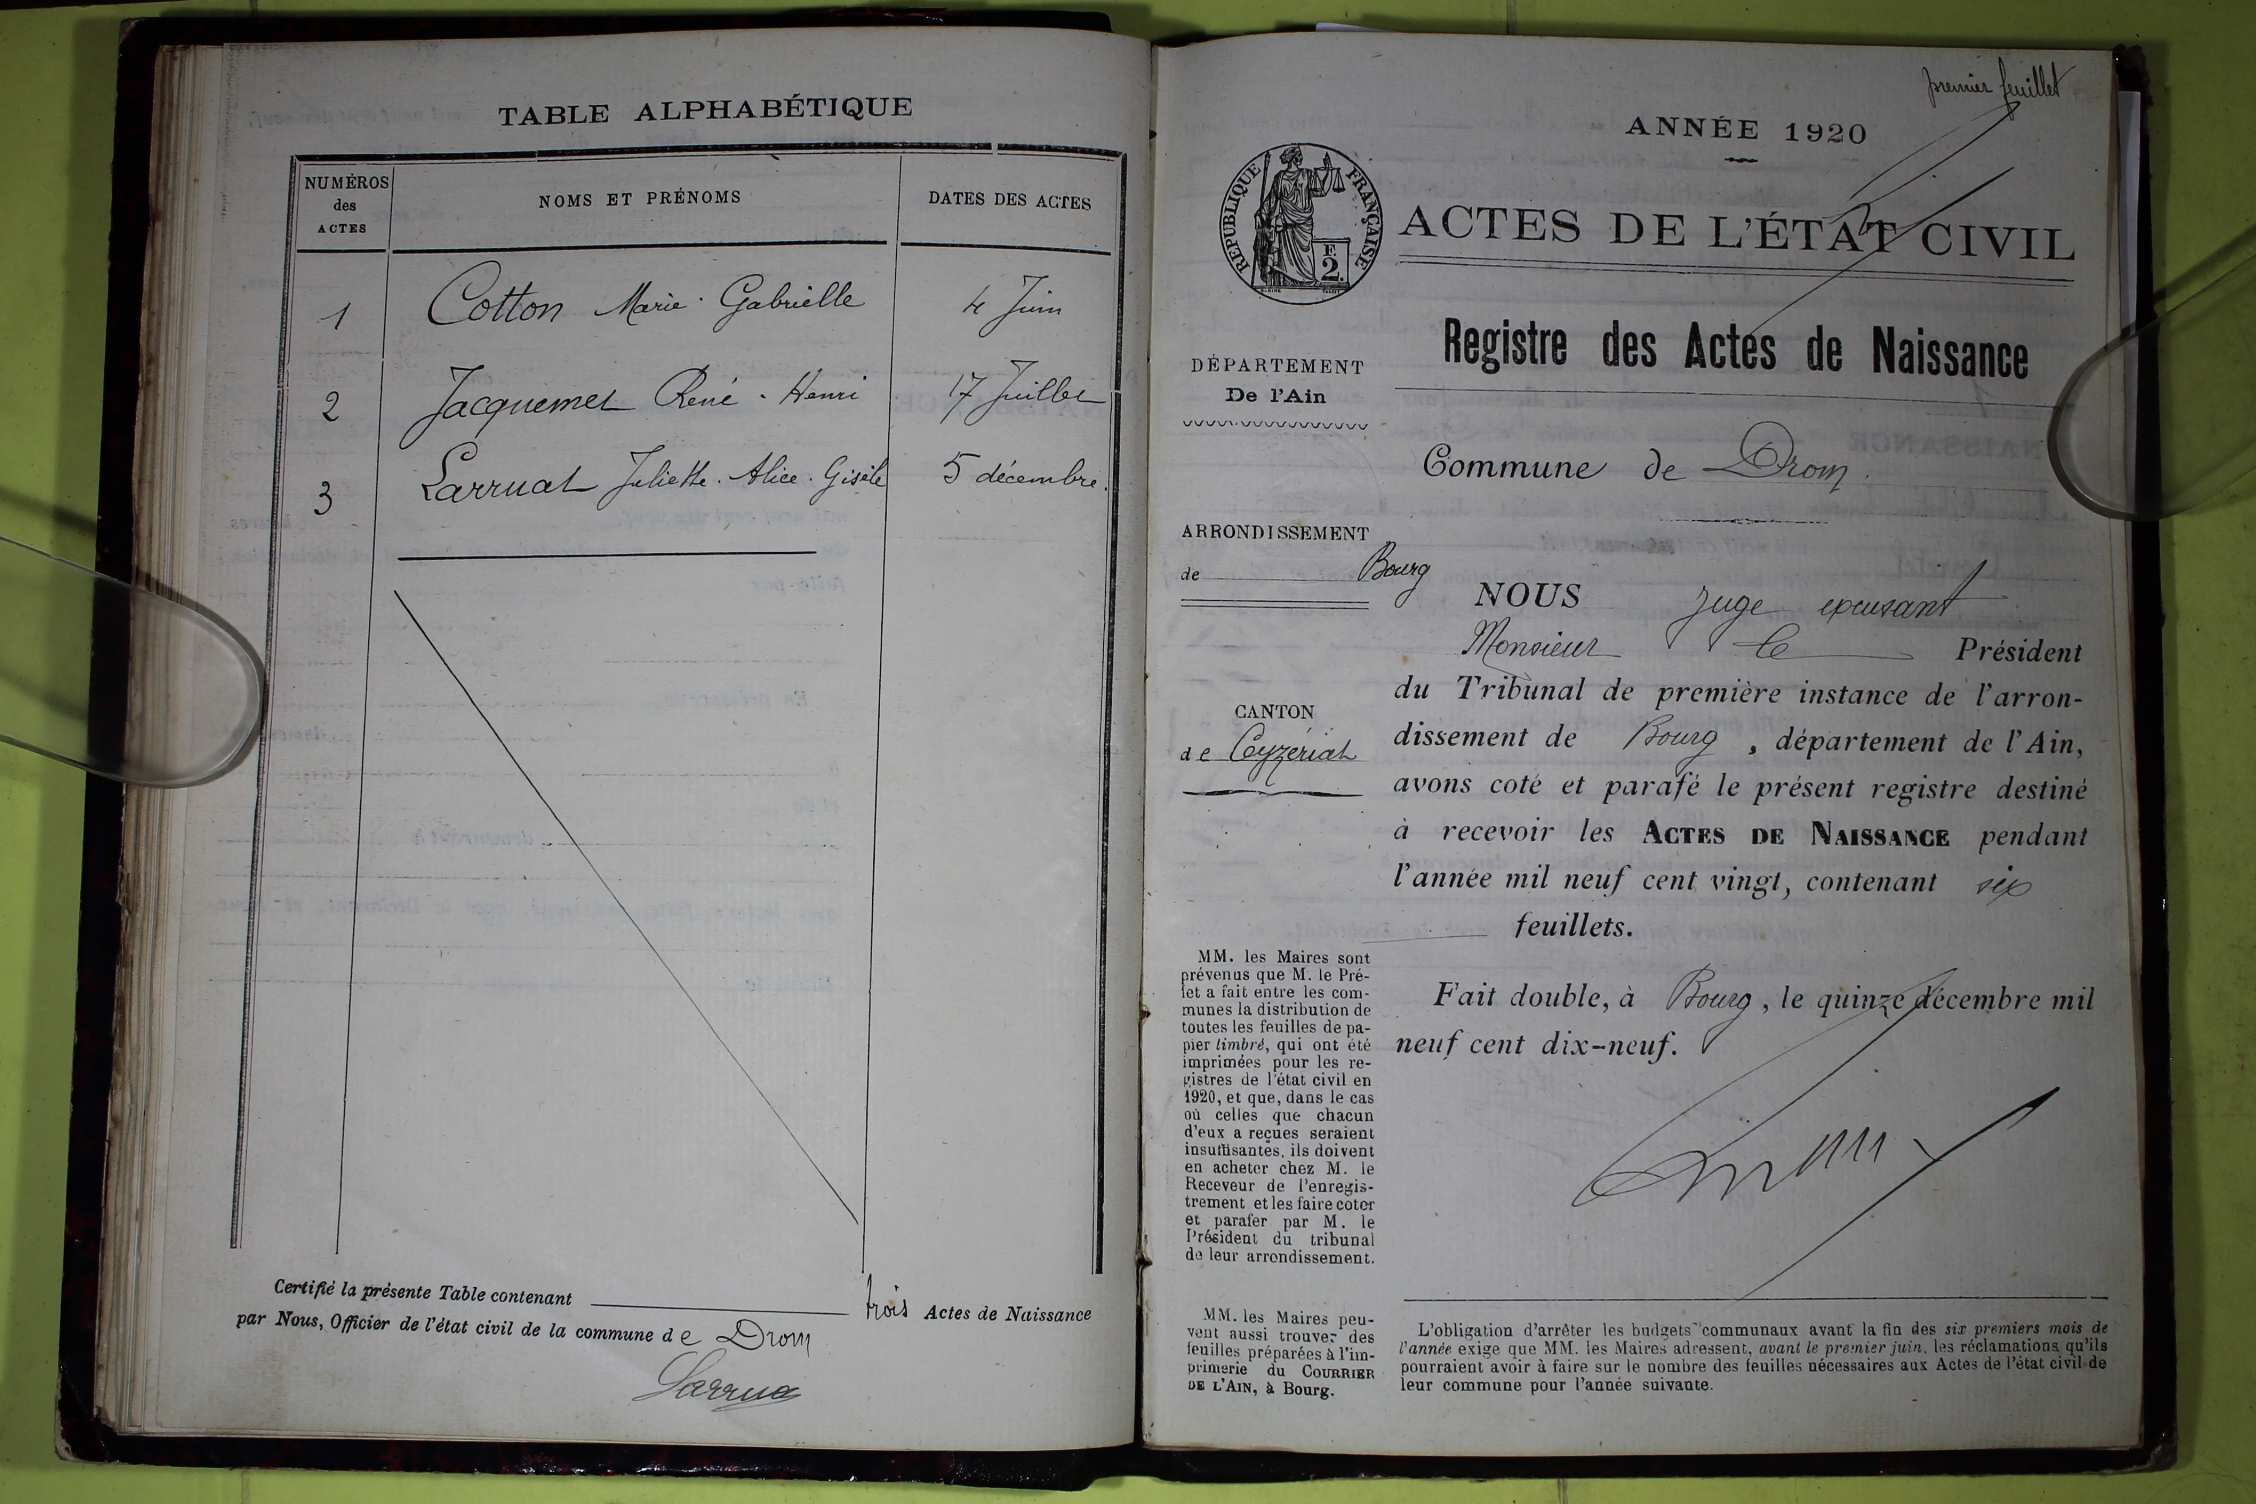 TABLE ALPHABÉTIQUE
NUMÉROS
des
ACTES
NOMS ET PRÉNOMS
DATES DES ACTES
1 Cotton Marie-Gabrielle 4 Juin
2 Jacquemet René-Henri 17 Juillet
3 Larruat Juliette-Alice-Gisèle 5 décembre.
Certifié la présente Table contenant trois Actes de Naissance
par Nous, Officier de l'état civil de la commune de Drom
premier feuillet
ANNÉE 1920
RÉPUBLIQUE FRANÇAISE
2
ACTES DE L'ÉTAT CIVIL
Registre des Actes de Naissance
DÉPARTEMENT
De l'Ain
Commune de Drom
ARRONDISSEMENT
de Bourg
CANTON
de Ceyzériat
NOUS juge excusant
Monsieur le Président
du Tribunal de première instance de l'arron-
dissement de Bourg, département de l'Ain,
avons coté et parafé le présent registre destiné
à recevoir les ACTES DE NAISSANCE pendant
l'année mil neuf cent vingt, contenant six
feuillets.
Fait double, à Bourg, le quinze décembre mil
neuf cent dix-neuf.
MM. les Maires sont
prévenus que M. le Pré-
fet a fait entre les com-
munes la distribution de
toutes les feuilles de pa-
pier timbré, qui ont été
imprimées pour les re-
gistres de l'état civil en
1920, et que, dans le cas
où celles que chacun
d'eux a reçues seraient
insuffisantes, ils doivent
en acheter chez M. le
Receveur de l'enregis-
trement et les faire coter
et parafer par M. le
Président du tribunal
de leur arrondissement.
MM. les Maires peu-
vent aussi trouver des
feuilles préparées à l'im-
primerie du COURRIER
DE L'AIN, à Bourg.
L'obligation d'arrêter les budgets communaux avant la fin des six premiers mois de
l'année exige que MM. les Maires adressent, avant le premier juin, les réclamations qu'ils
pourraient avoir à faire sur le nombre des feuilles nécessaires aux Actes de l'état civil de
leur commune pour l'année suivante.